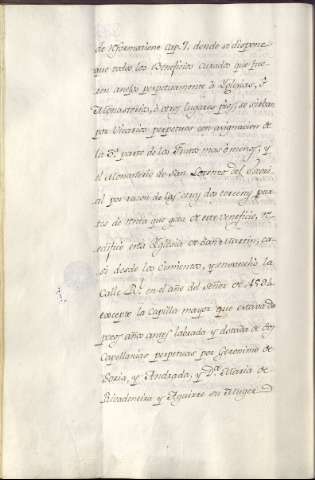 de Reformatione Cap. 7. donde se dispone
que todos los Beneficios Curados que fue-
sen anejos perpetuamente à Yglesias, ò
Monasterios, ò otros lugares pios, se sirban
por Vicarios perpetuos con asignacion de
la 3ª parte de los frutos mas ò menos, y
el Monasterio de San Lorenzo del
por razon de las dos tercers par-
tes de renta que goza de este Beneficio, re-
edificò esta Yglesia de San Martin, ca-
si desde los Cimientos, y ensanchò la
Calle Rl. en el año del Señor de 1594.
excepto la Capilla mayor que estaba de
pocos años antes labrada y dotada de dos
Capellanias perpetuas por Geronimo de
Soria, y Andrada, y Dª Maria de
Ribadeneira y Aguirre su Muger